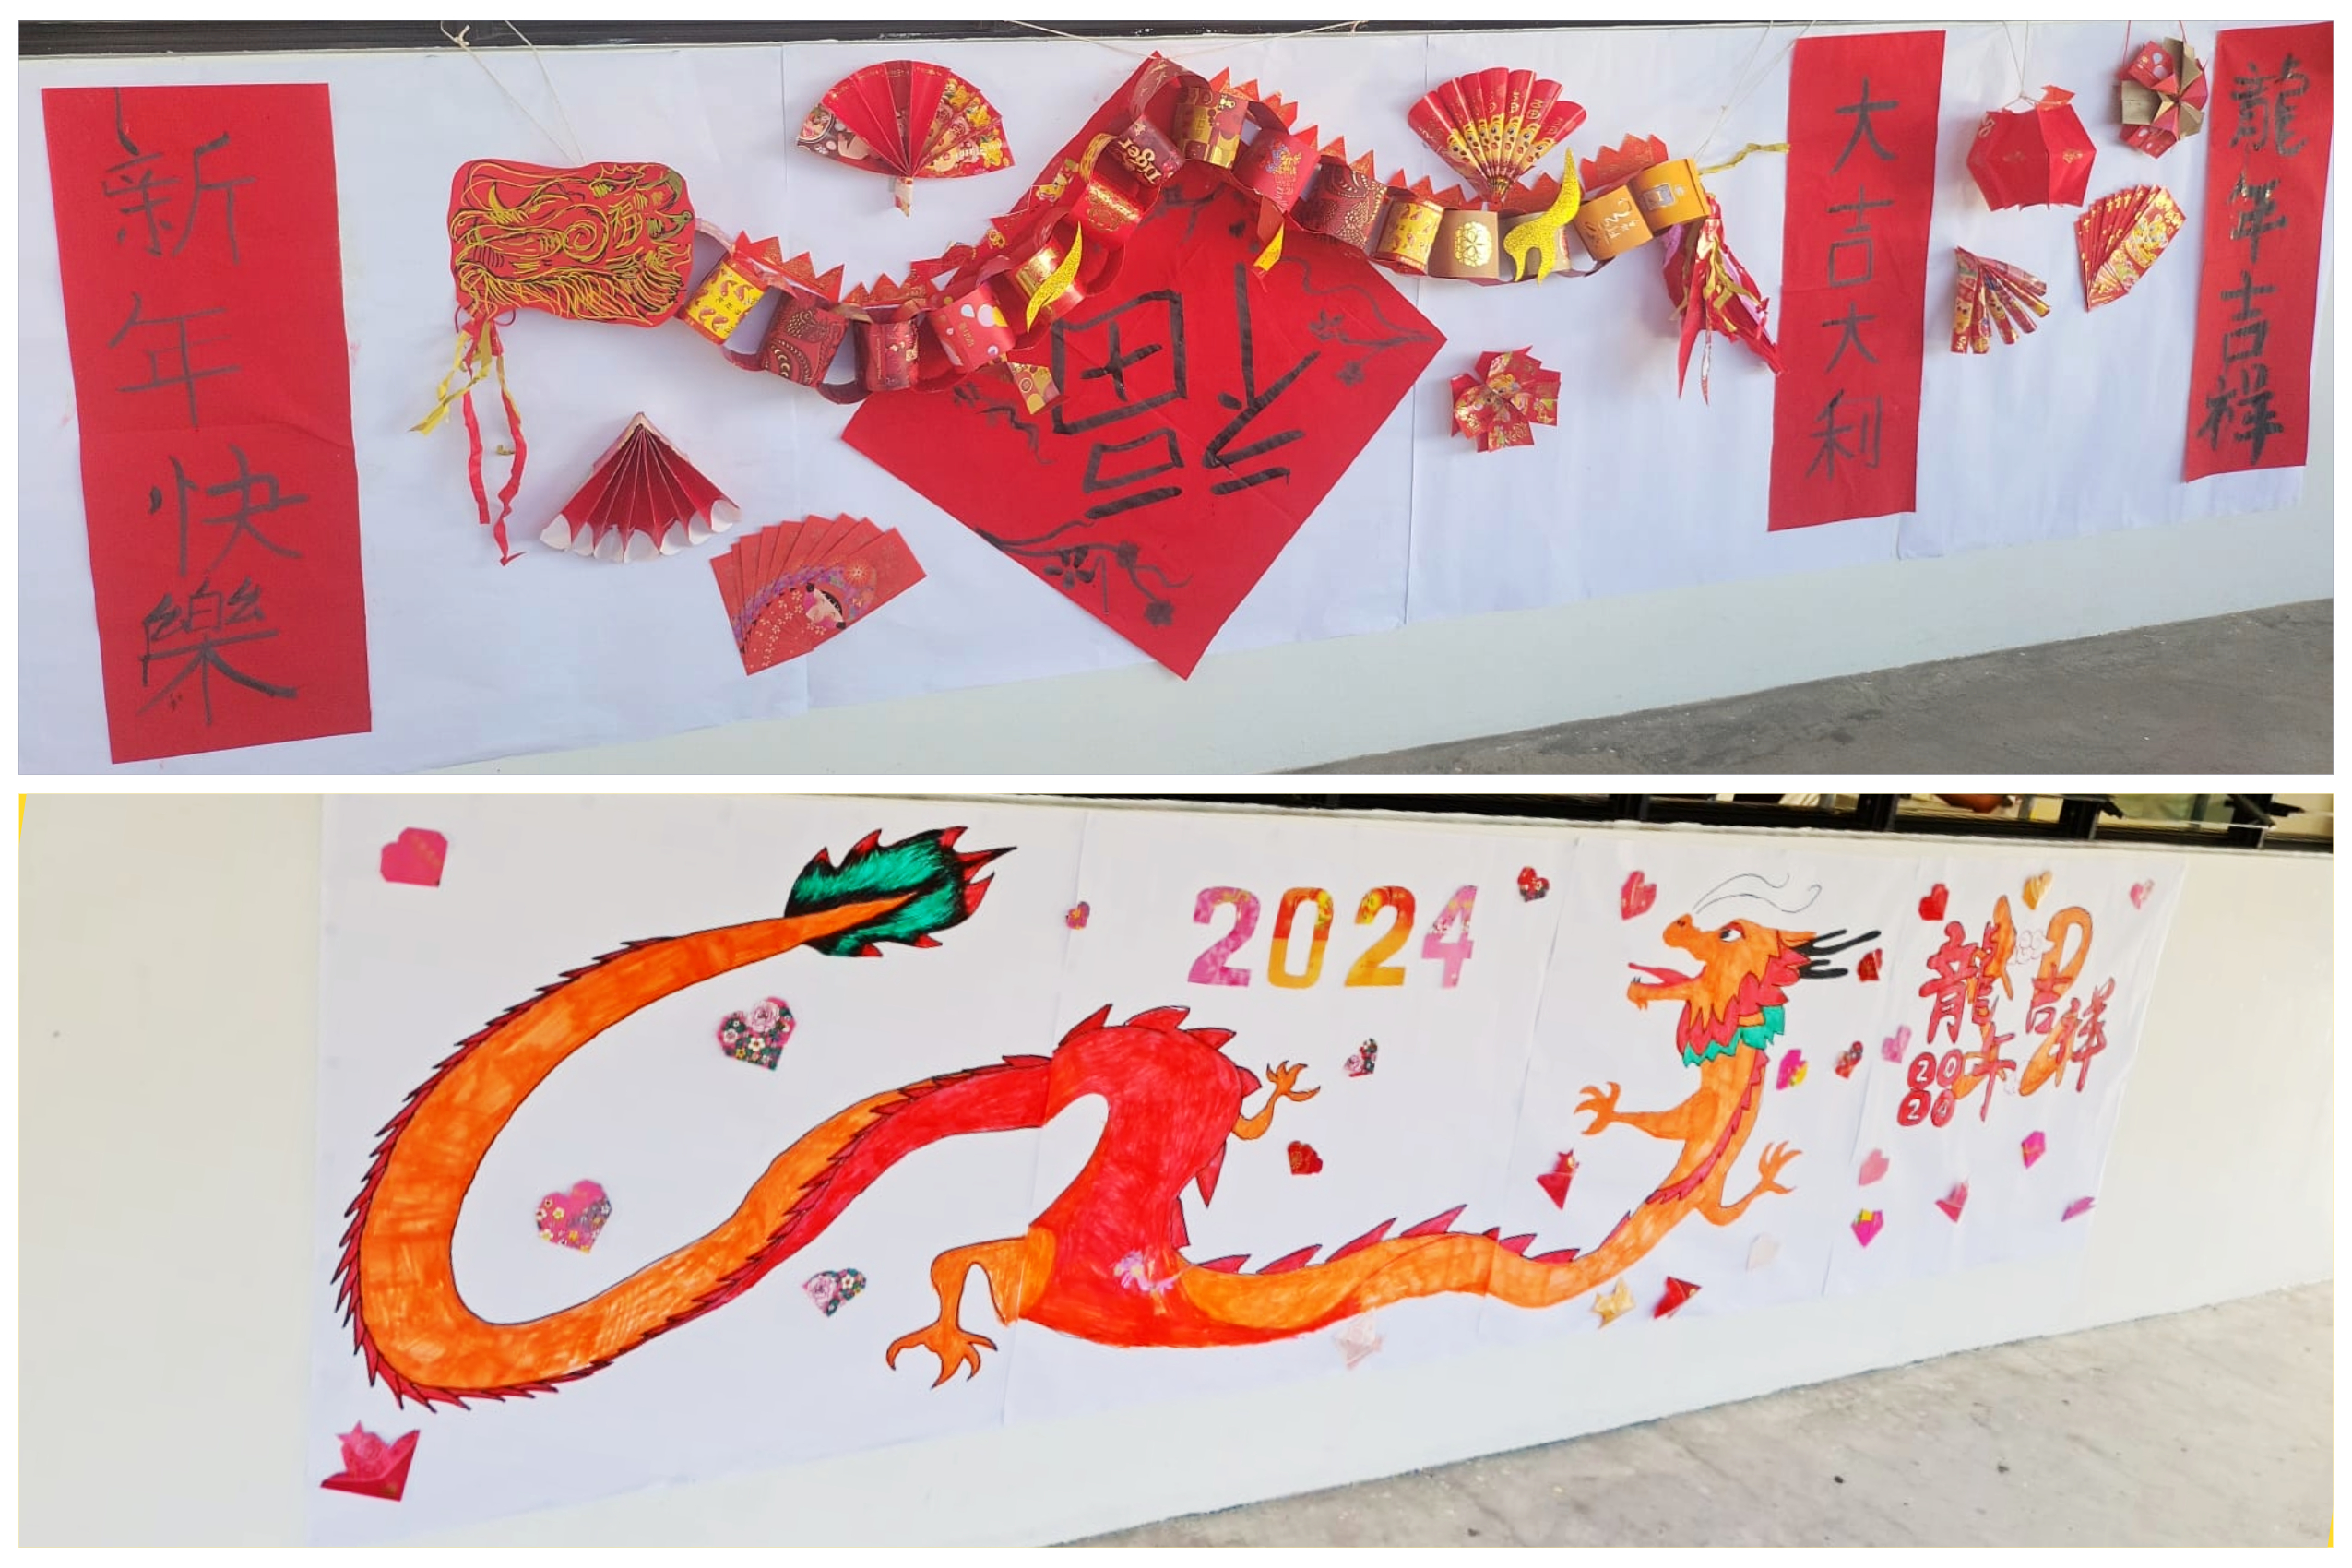 新年快樂
Tiger
福
大吉大利
龍年吉祥
2024
龍年吉祥
2024